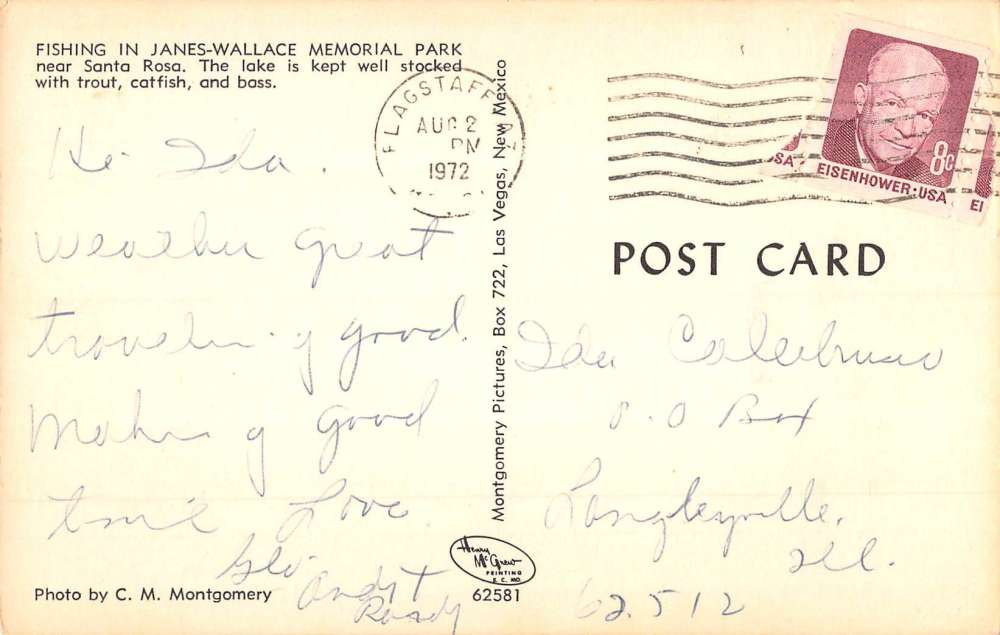 FISHING IN JANES-WALLACE MEMORIAL PARK
near Santa Rosa. The lake is kept well stocked
with trout, catfish, and bass.
Hi Ida.
Weather great
traveling good.
Making good
time Love
Glo
Andy +
Randy
Photo by C. M. Montgomery
Montgomery Pictures, Box 722, Las Vegas, New Mexico
Henry
McGrew
PRINTING
K. C. MO.
62581
FLAGSTAFF AZ
AUG 2
PM
1972
SA
EISENHOWER·USA
8c
EI
POST CARD
Ida
P.O Box
Langleyville,
Ill.
62512